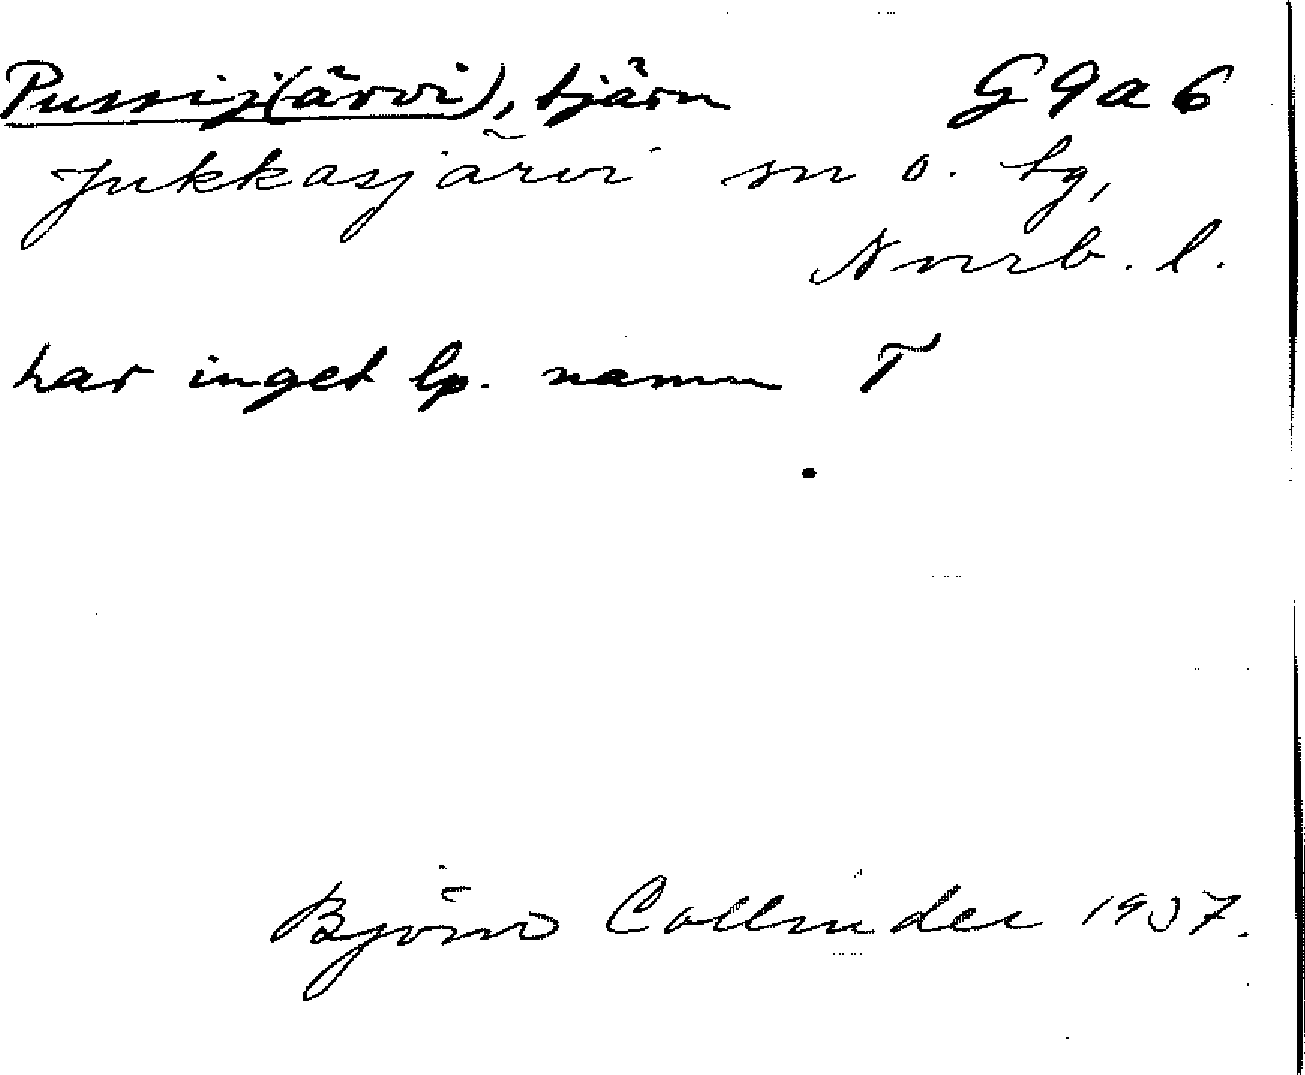 Pussij(ärvi), tjärn G9a6
Jukkasjärvi sn o. tg,
Norrb. l.
har inget lp. namn T
Björn Collinder 1937.